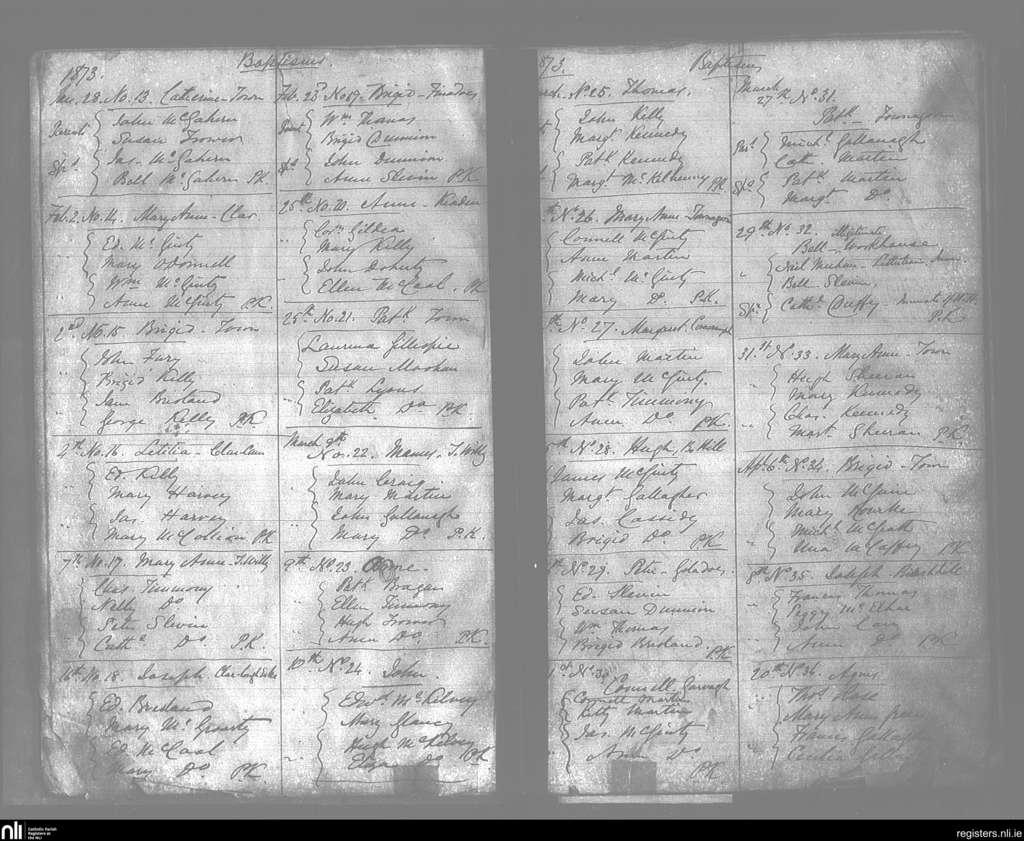 1873.
Baptisms.
Jan. 28. No. 13. Catherine - Town
Parents
John McGahern
Susan Trower
Sps
Jas. McGahern
Bell McGahern P.K.
Feb. 2. No. 14. Mary Anne - Clar
Ed. McGinty
Mary O'Donnell
Wm McGinty
Anne McGinty P.K.
2nd No. 15 Brigid - Town
John Fury
Brigid Kelly
Jane Bresland
George Kelly P.K.
4th No. 16. Letitia -
Ed. Kelly
Mary Harvey
Jas. Harvey
Mary P.K.
7th No. 17. Mary Anne - T.Willy
Chas. Timmony
Nelly Do
Peter Slevin
Cathe Do P.K.
16th No. 18. Joseph
Ed. Bresland
Mary McGroarty
Ed. McCaul
Mary Do P.K.
Feb. 23d No. 19 - Brigid -
Parents
Wm Thomas
Brigid Dunnion
Sps
John Dunnion
Anne Slevin P.K.
25th No. 20. Anne -
Corns Gildea
Mary Kelly
John Doherty
Ellen McCaul. P.K.
25th No. 21. Patk Town
Laurence Gillespie
Susan Meehan
Patk Lyons
Elizabeth Do P.K.
March 9th
No. 22. Manus - T.Willy
John Craig
Mary Martin
John Gallaugh
Mary Do P.K.
9th No. 23. Anne -
Patk Brogan
Ellen Timmony
Hugh Trower
Anne Do P.K.
10th No. 24. John.
Edwd McKelvey
Mary Glancy
Hugh McKelvey
Do P.K.
873.
Baptisms
No. 25. Thomas.
John Kelly
Margt Kennedy
Patk Kennedy
Margt McKelhenny P.K.
No. 26. Mary Anne -
Connell McGinty
Anne Martin
Michl McGinty
Mary Do. P.K.
No. 27. Margaret
John Martin
Mary McGinty.
Patk Timmony
Anne Do P.K.
No. 28. Hugh, B.Hill
James McGinty
Margt Gallagher
Jas. Cassidy
Brigid Do P.K.
No. 29. Peter -
Ed. Slevin
Susan Dunnion
Wm Thomas
Brigid Breslaud. P.K.
No. 30
Connell
Connell Martin
Kitty Martin
Jas. McGinty
Anne Do
P.K.
March
27th No. 31.
Patk
Par.s
Michl Gallanagh
Cath. Martin
Sps
Patk Martin
Margt Do
29th No. 32. Illegitimate
Bell - Workhouse
Neil
Bell Slevin.
Spr
Cathe Duffy - Inmate of W.H.
P.K.
31.st No. 33. Mary Anne - Town
Hugh Sheeran
Mary Kennedy
Chas. Kennedy
Margt Sheeran P.K.
Apl. 6th No. 34. Brigid - Town
John McGuire
Mary Rourke
Michl McGrath
Una McCaffrey P.K.
8th No. 35. Joseph
Francis Thomas
Peggy McElhar
John
Anne Do P.K.
20th No. 36. Agnes
Thos
Mary Anne
Francis
Cecilia
nli
Catholic Parish
Registers at
the NLI
registers.nli.ie